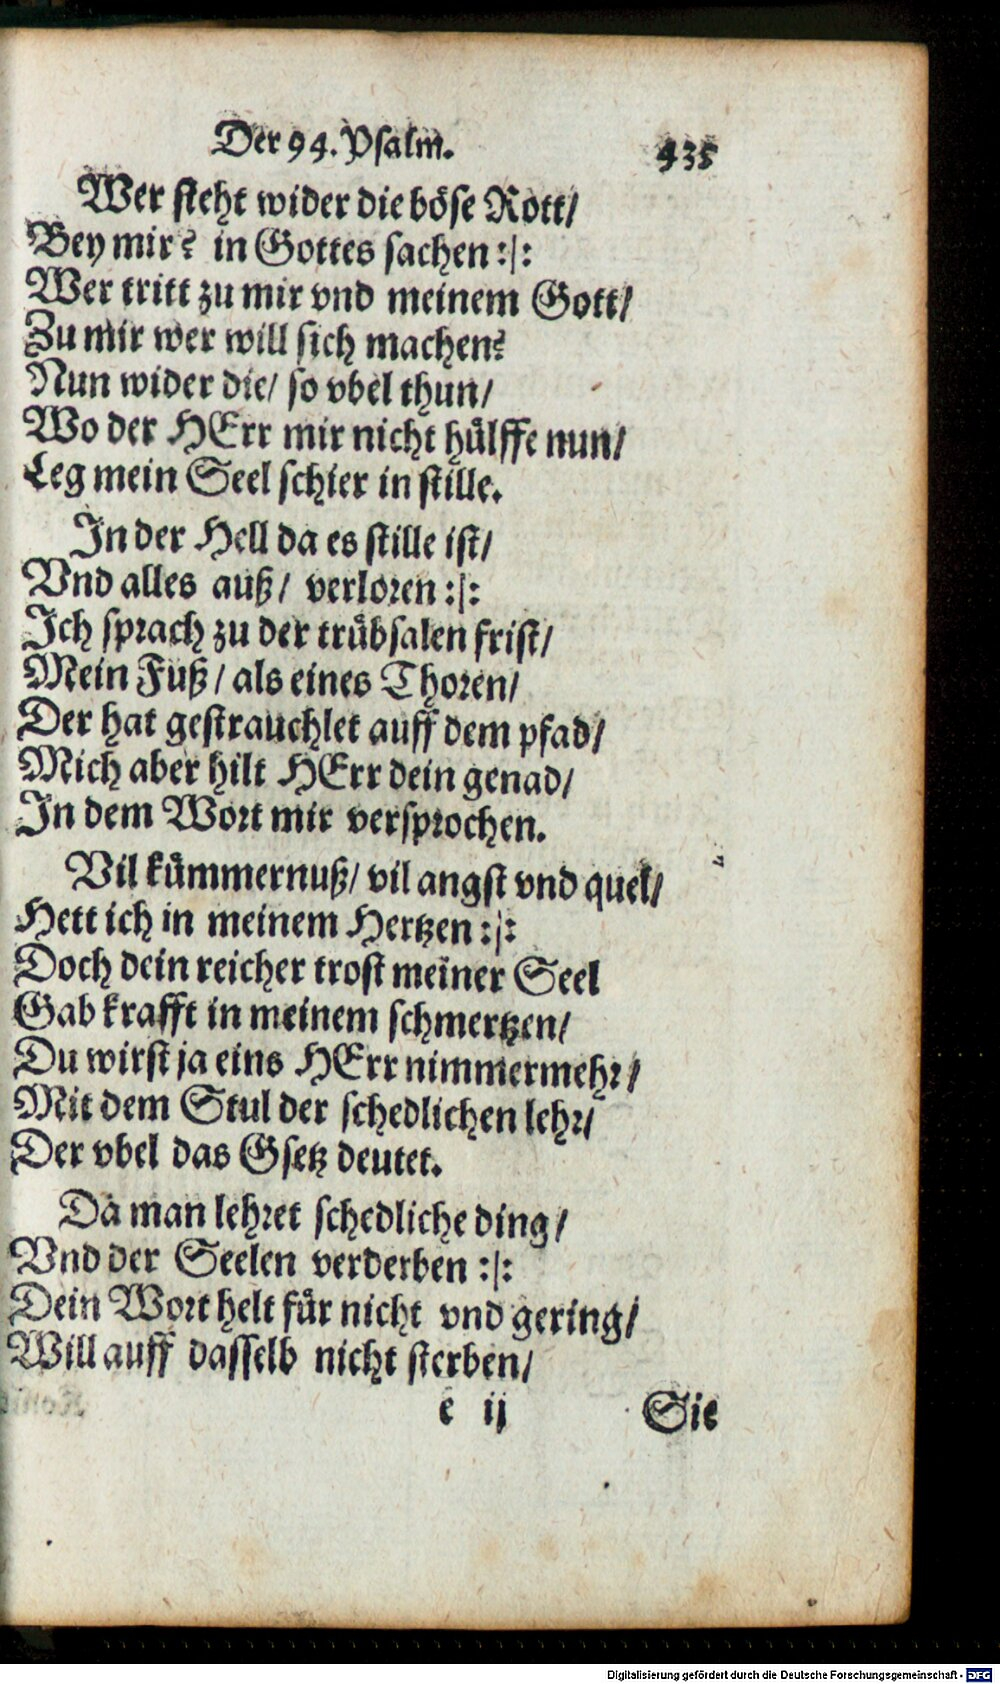 Der 94. Psalm. 435
Wer steht wider die böse Rott/
Bey mir? in Gottes sachen :|:
Wer tritt zu mir vnd meinem Gott/
Zu mir wer will sich machen?
Nun wider die/ so vbel thun/
Wo der HErr mir nicht hülffe nun/
Leg mein Seel schier in stille.
In der Hell da es stille ist/
Vnd alles auß/ verloren :|:
Ich sprach zu der trübsalen frist/
Mein Fuß/ als eines Thoren/
Der hat gestrauchlet auff dem pfad/
Mich aber hilt HErr dein genad/
In dem Wort mir versprochen.
Vil kümmernuß/ vil angst vnd quel/
Hett ich in meinem Hertzen :|:
Doch dein reicher trost meiner Seel
Gab krafft in meinem schmertzen/
Du wirst ja eins HErr nimmermehr/
Mit dem Stul der schedlichen lehr/
Der vbel das Gsetz deutet.
Da man lehret schedliche ding/
Vnd der Seelen verderben :|:
Dein Wort helt für nicht vnd gering/
Will auff dasselb nicht sterben/
e ij Sie
Digitalisierung gefördert durch die Deutsche Forschungsgemeinschaft - DFG